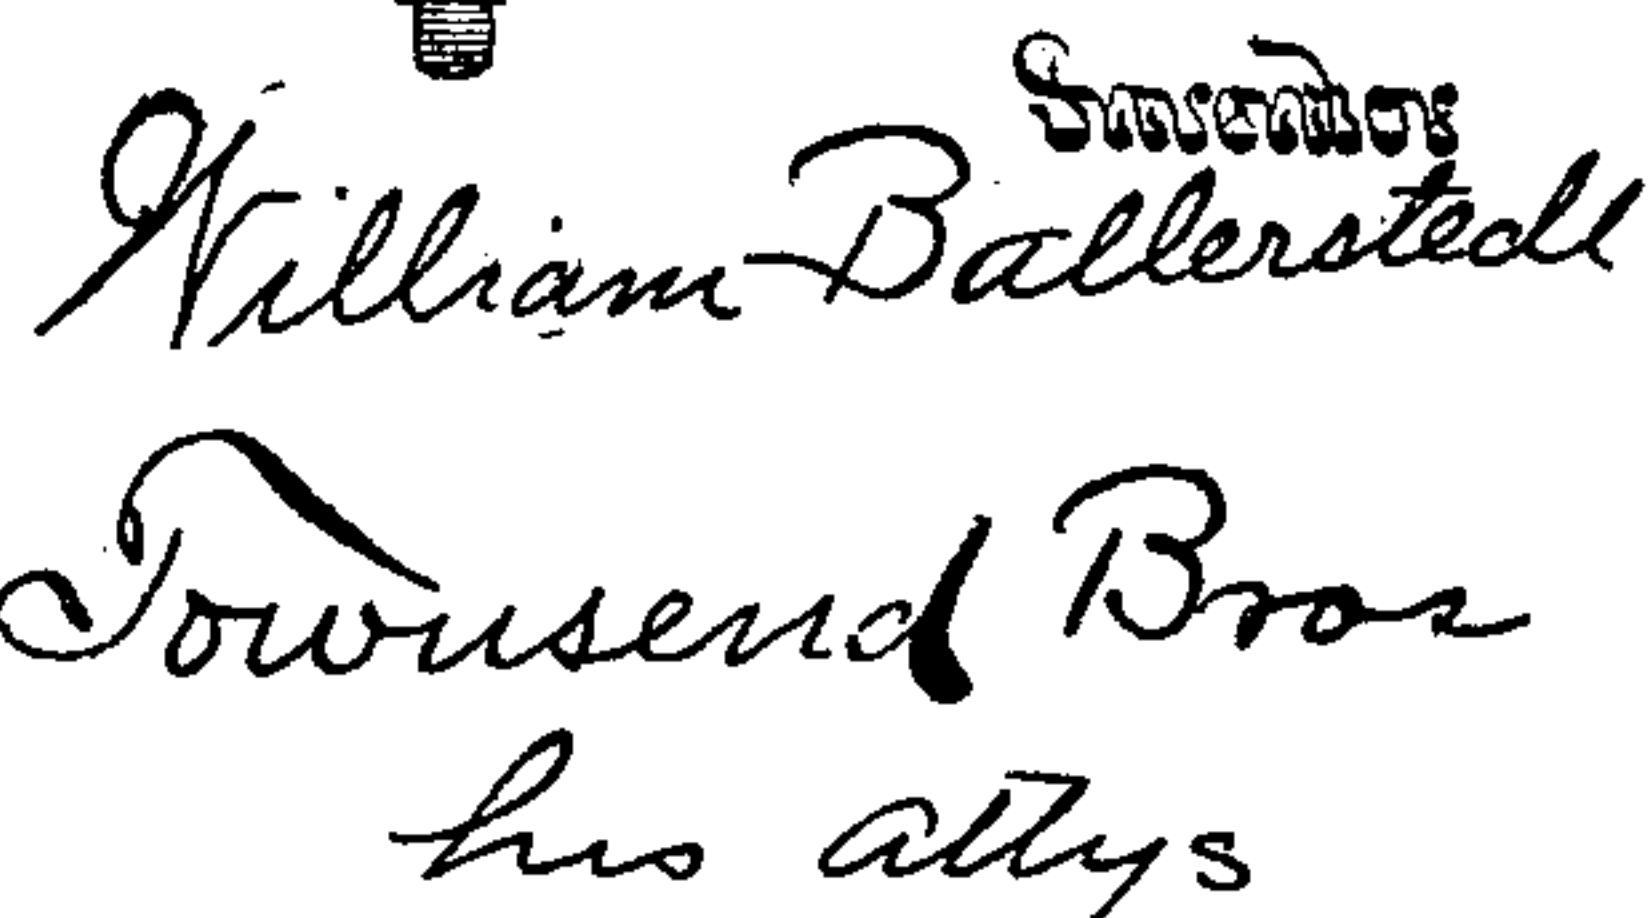 Inventor:
William Ballerstedt
Townsend Bros
his attys